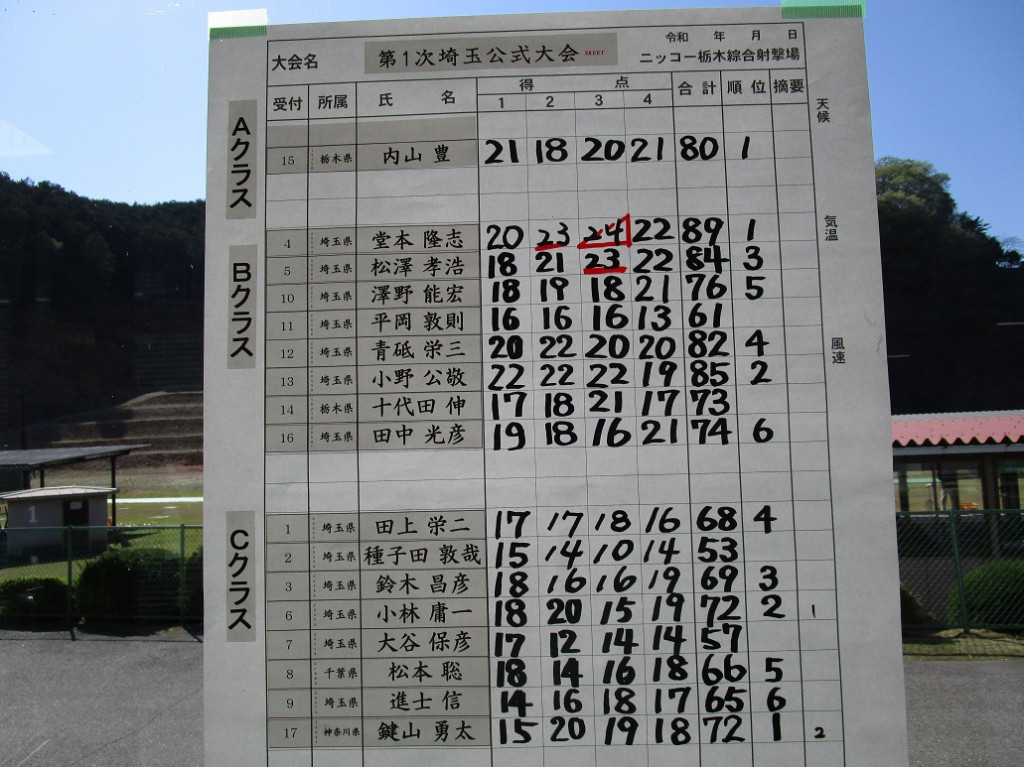 令和 年 月 日
大会名 第1次埼玉公式大会 SKEET ニッコー栃木綜合射撃場
受付 所属 氏 名 得 点 合計 順位 摘要
1 2 3 4
天候
Aクラス
15 栃木県 内山 豊 21 18 20 21 80 1
気温
Bクラス
4 埼玉県 堂本 隆志 20 23 24 22 89 1
5 埼玉県 松澤 孝浩 18 21 23 22 84 3
10 埼玉県 澤野 能宏 18 19 18 21 76 5
11 埼玉県 平岡 敦則 16 16 16 13 61
風速
12 埼玉県 青砥 栄三 20 22 20 20 82 4
13 埼玉県 小野 公敬 22 22 22 19 85 2
14 栃木県 十代田 伸 17 18 21 17 73
16 埼玉県 田中 光彦 19 18 16 21 74 6
Cクラス
1 埼玉県 田上 栄二 17 17 18 16 68 4
2 埼玉県 種子田 敦哉 15 14 10 14 53
3 埼玉県 鈴木 昌彦 18 16 16 19 69 3
6 埼玉県 小林 庸一 18 20 15 19 72 2 1
7 埼玉県 大谷 保彦 17 12 14 14 57
8 千葉県 松本 聡 18 14 16 18 66 5
9 埼玉県 進士 信 14 16 18 17 65 6
17 神奈川県 鍵山 勇太 15 20 19 18 72 1 2
1